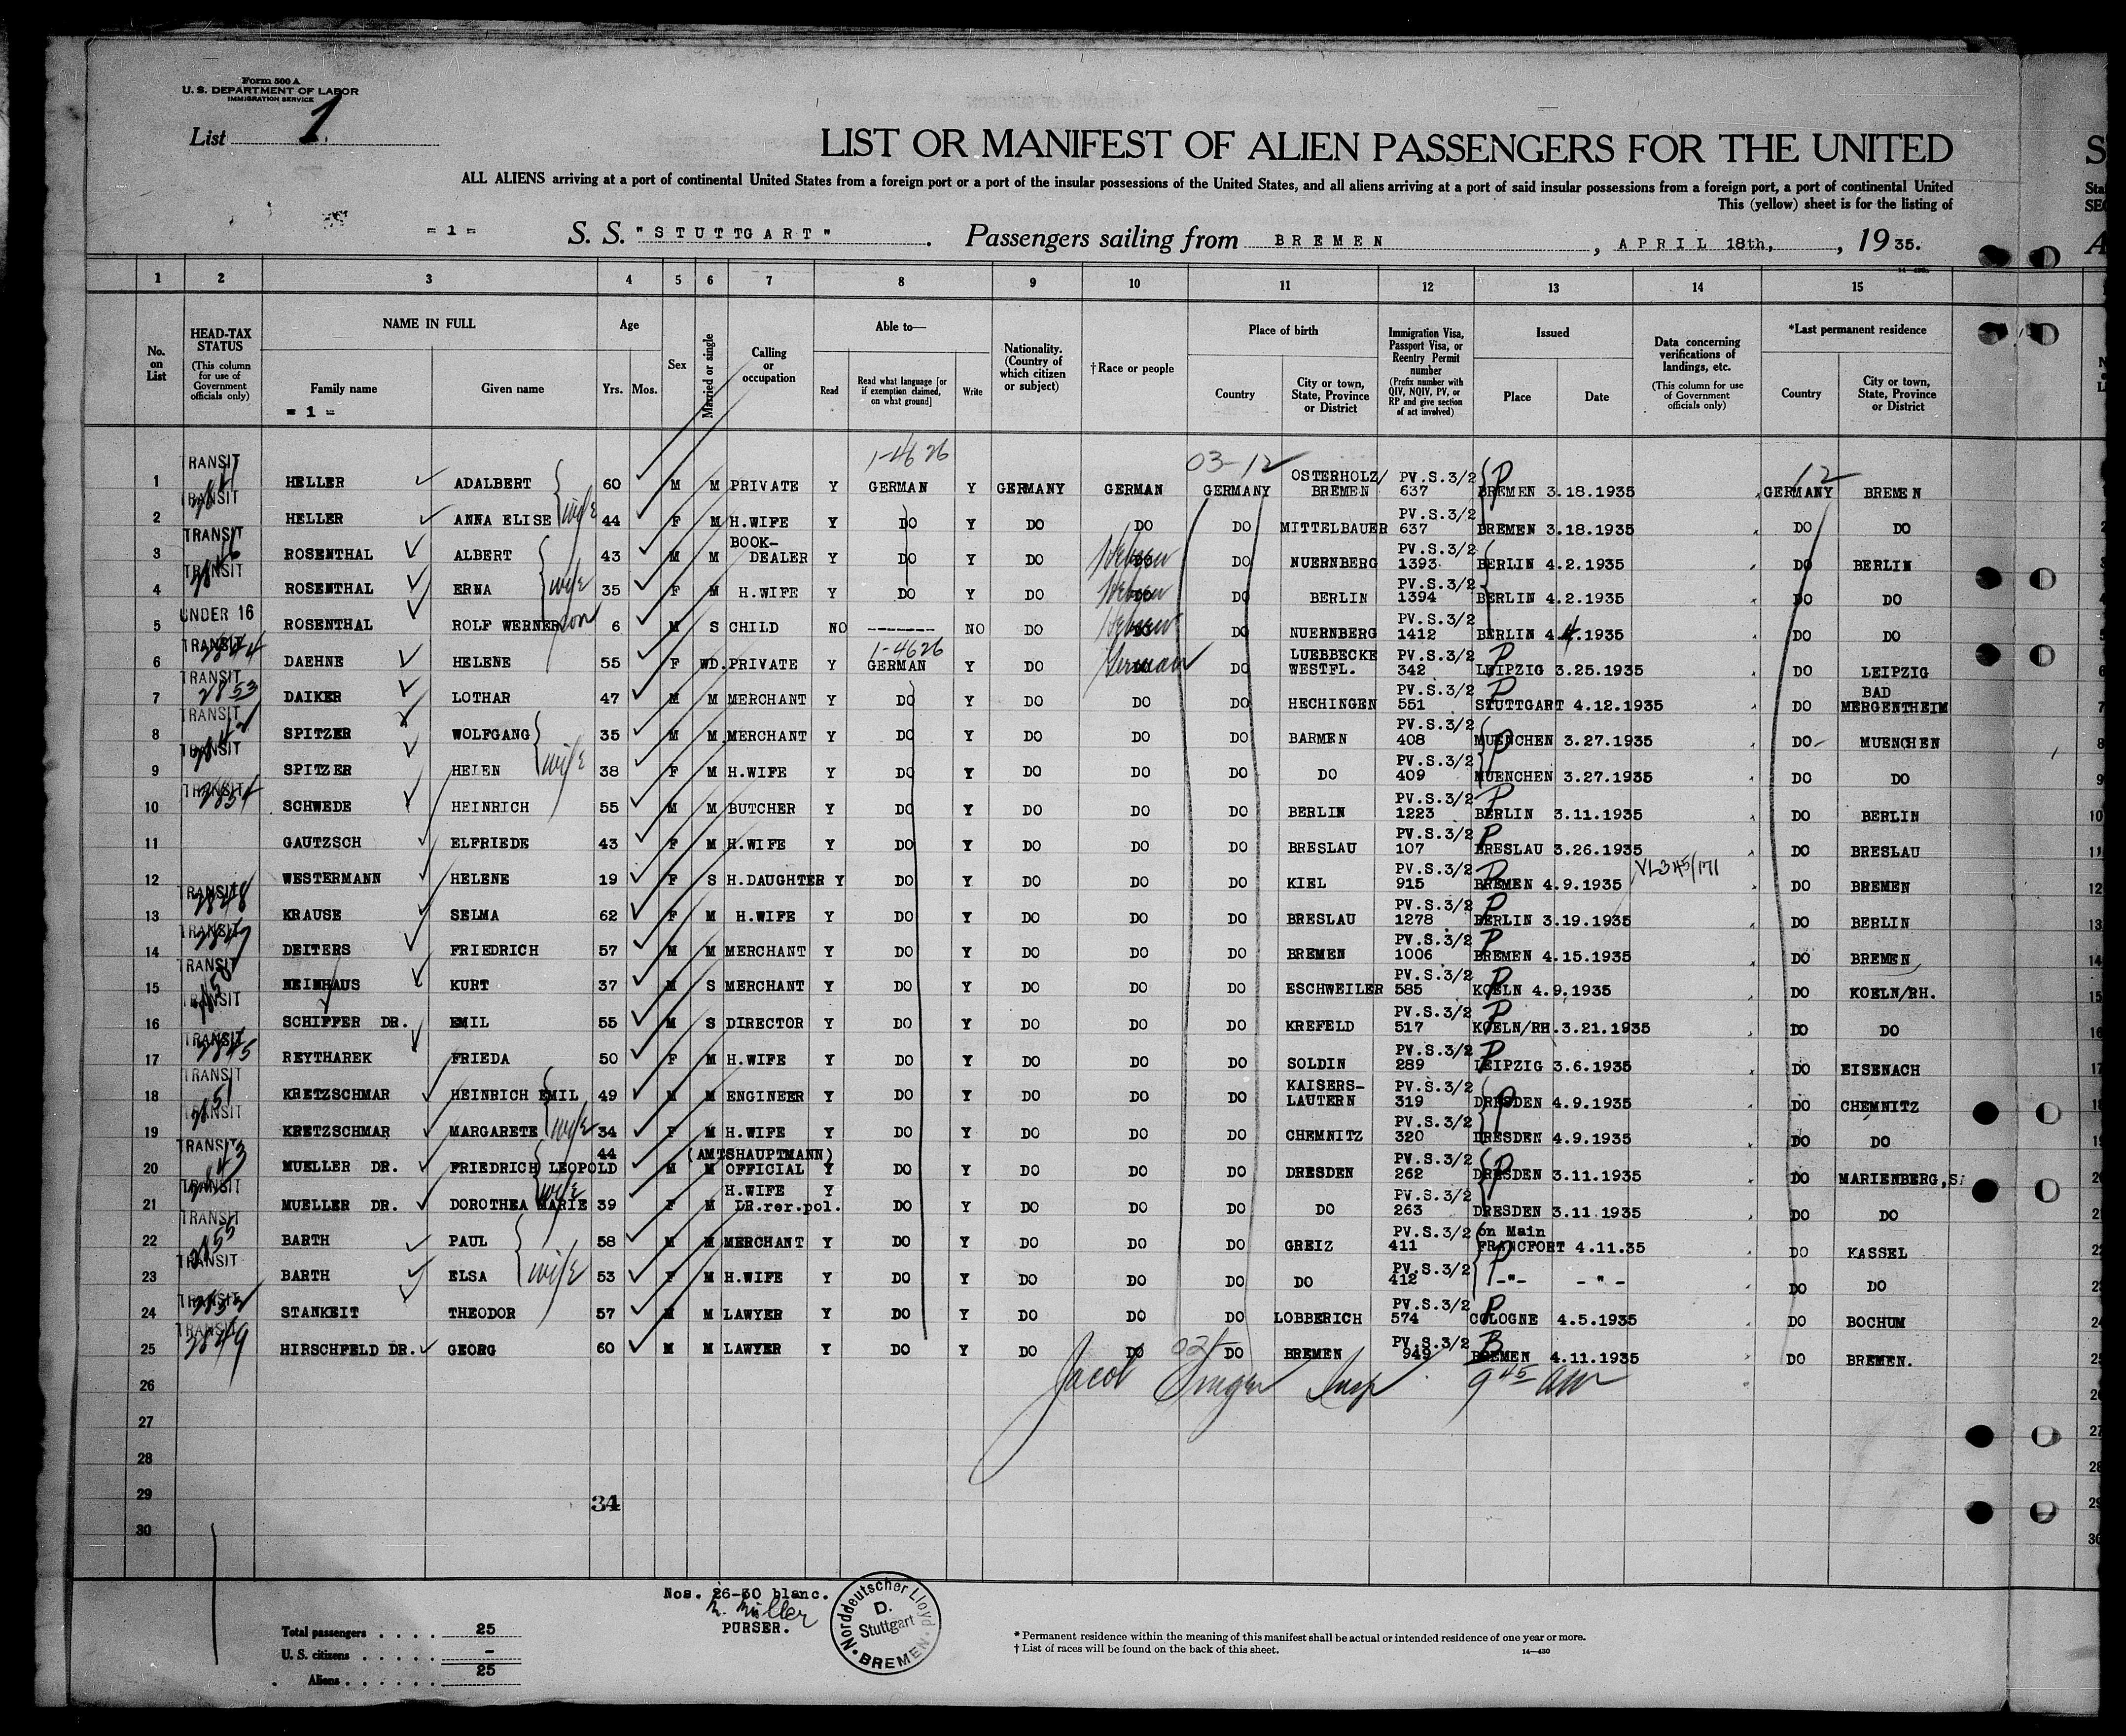 Form 500 A
U. S. DEPARTMENT OF LABOR
IMMIGRATION SERVICE
List 1
LIST OR MANIFEST OF ALIEN PASSENGERS FOR THE UNITED
ALL ALIENS arriving at a port of continental United States from a foreign port or a port of the insular possessions of the United States, and all aliens arriving at a port of said insular possessions from a foreign port, a port of continental United
This (yellow) sheet is for the listing of
= 1 = S. S. "STUTTGART". Passengers sailing from BREMEN, APRIL 18th, 1935.
1 2 3 4 5 6 7 8 9 10 11 12 13 14 15
No. on List
HEAD-TAX STATUS (This column for use of Government officials only)
NAME IN FULL Family name Given name
= 1 =
Age Yrs. Mos.
Sex
Married or single
Calling or occupation
Able to— Read Read what language [or if exemption claimed, on what ground] Write
Nationality. (Country of which citizen or subject)
†Race or people
Place of birth Country City or town, State, Province or District
Immigration Visa, Passport Visa, or Reentry Permit number (Prefix number with QIV, NQIV, PV, or RP and give section of act involved)
Issued Place Date
Data concerning verifications of landings, etc. (This column for use of Government officials only)
*Last permanent residence Country City or town, State, Province or District
1-4626 03-12 12
1 TRANSIT HELLER ADALBERT 60 M M PRIVATE Y GERMAN Y GERMANY GERMAN GERMANY OSTERHOLZ/BREMEN PV.S.3/2 637 P BREMEN 3.18.1935 GERMANY BREMEN
2 TRANSIT HELLER ANNA ELISE wife 44 F M H.WIFE Y DO Y DO DO DO MITTELBAUER PV.S.3/2 637 BREMEN 3.18.1935 DO DO
3 TRANSIT ROSENTHAL ALBERT 43 M M BOOK-DEALER Y DO Y DO Hebrew DO NUERNBERG PV.S.3/2 1393 BERLIN 4.2.1935 DO BERLIN
4 TRANSIT ROSENTHAL ERNA wife 35 F M H.WIFE Y DO Y DO Hebrew DO BERLIN PV.S.3/2 1394 BERLIN 4.2.1935 DO DO
5 UNDER 16 ROSENTHAL ROLF WERNER son 6 M S CHILD NO ------- NO DO Hebrew DO NUERNBERG PV.S.3/2 1412 BERLIN 4.4.1935 DO DO
1-4626
6 TRANSIT 2844 DAEHNE HELENE 55 F WD. PRIVATE Y GERMAN Y DO German DO LUEBBECKE WESTFL. PV.S.3/2 342 P LEIPZIG 3.25.1935 DO LEIPZIG
7 TRANSIT 2853 DAIKER LOTHAR 47 M M MERCHANT Y DO Y DO DO DO HECHINGEN PV.S.3/2 551 P STUTTGART 4.12.1935 DO BAD MERGENTHEIM
8 TRANSIT SPITZER WOLFGANG 35 M M MERCHANT Y DO Y DO DO DO BARMEN PV.S.3/2 408 P MUENCHEN 3.27.1935 DO MUENCHEN
9 TRANSIT SPITZER HELEN wife 38 F M H.WIFE Y DO Y DO DO DO DO PV.S.3/2 409 MUENCHEN 3.27.1935 DO DO
10 TRANSIT 2854 SCHWEDE HEINRICH 55 M M BUTCHER Y DO Y DO DO DO BERLIN PV.S.3/2 1223 P BERLIN 3.11.1935 DO BERLIN
11 GAUTZSCH ELFRIEDE 43 F M H.WIFE Y DO Y DO DO DO BRESLAU PV.S.3/2 107 P BRESLAU 3.26.1935 DO BRESLAU
12 WESTERMANN HELENE 19 F S H.DAUGHTER Y DO Y DO DO DO KIEL PV.S.3/2 915 P BREMEN 4.9.1935 DO BREMEN
13 TRANSIT 2848 KRAUSE SELMA 62 F M H.WIFE Y DO Y DO DO DO BRESLAU PV.S.3/2 1278 P BERLIN 3.19.1935 DO BERLIN
14 TRANSIT 2847 DEITERS FRIEDRICH 57 M M MERCHANT Y DO Y DO DO DO BREMEN PV.S.3/2 1006 P BREMEN 4.15.1935 DO BREMEN
15 TRANSIT NEINHAUS KURT 37 M S MERCHANT Y DO Y DO DO DO ESCHWEILER PV.S.3/2 585 P KOELN 4.9.1935 DO KOELN/RH.
16 TRANSIT SCHIFFER DR. EMIL 55 M S DIRECTOR Y DO Y DO DO DO KREFELD PV.S.3/2 517 P KOELN/RH.3.21.1935 DO DO
17 TRANSIT 2845 REYTHAREK FRIEDA 50 F M H.WIFE Y DO Y DO DO DO SOLDIN PV.S.3/2 289 P LEIPZIG 3.6.1935 DO EISENACH
18 TRANSIT 2851 KRETZSCHMAR HEINRICH EMIL 49 M M ENGINEER Y DO Y DO DO DO KAISERS-LAUTERN PV.S.3/2 319 P DRESDEN 4.9.1935 DO CHEMNITZ
19 TRANSIT KRETZSCHMAR MARGARETE wife 34 F M H.WIFE Y DO Y DO DO DO CHEMNITZ PV.S.3/2 320 DRESDEN 4.9.1935 DO DO
20 TRANSIT 2843 MUELLER DR. FRIEDRICH LEOPOLD 44 M M (AMTSHAUPTMANN) OFFICIAL Y DO Y DO DO DO DRESDEN PV.S.3/2 262 P DRESDEN 3.11.1935 DO MARIENBERG,S
21 TRANSIT MUELLER DR. DOROTHEA MARIE wife 39 F M H.WIFE Y DR.rer.pol. DO Y DO DO DO DO PV.S.3/2 263 DRESDEN 3.11.1935 DO DO
22 TRANSIT 2855 BARTH PAUL 58 M M MERCHANT Y DO Y DO DO DO GREIZ PV.S.3/2 411 on Main FRANCFORT 4.11.35 DO KASSEL
23 TRANSIT BARTH ELSA wife 53 F M H.WIFE Y DO Y DO DO DO DO PV.S.3/2 412 P -"- - " - DO DO
24 TRANSIT STANKEIT THEODOR 57 M M LAWYER Y DO Y DO DO DO LOBBERICH PV.S.3/2 574 P COLOGNE 4.5.1935 DO BOCHUM
25 TRANSIT 2849 HIRSCHFELD DR. GEORG 60 M M LAWYER Y DO Y DO DO DO BREMEN PV.S.3/2 949 B BREMEN 4.11.1935 DO BREMEN.
26 Jacob Singer Insp 9 45 am
27
28
29 34
30
Nos. 26-30 blanc.
M. Müller
PURSER.
Norddeutscher Lloyd
D.
Stuttgart
BREMEN
Total passengers . . . . 25
U. S. citizens . . . . . –
Aliens . . . . . . 25
* Permanent residence within the meaning of this manifest shall be actual or intended residence of one year or more.
† List of races will be found on the back of this sheet.
14—430